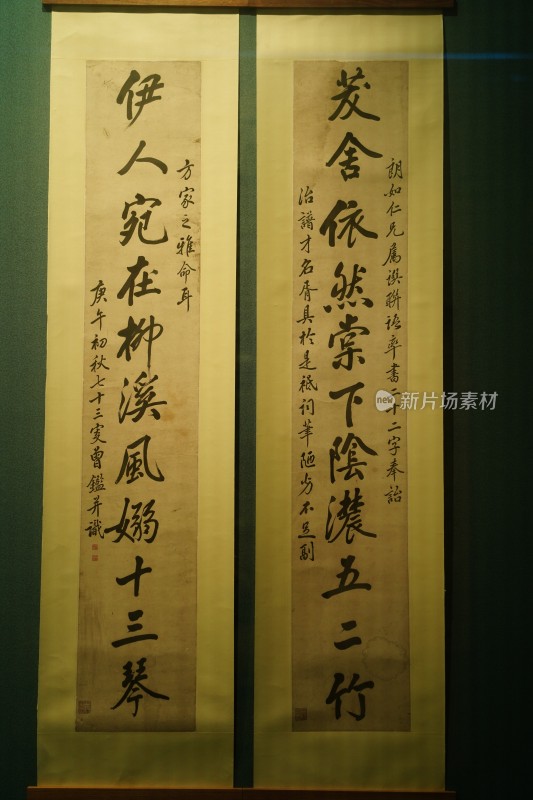 茇舍依然棠下陰濃五二竹
朗如仁兄屬撰聯語率書二十二字奉詒
治譜才名胥具於是祗詞華陋劣不足副
伊人宛在柳溪風嫋十三琴
方家之雅命耳
庚午初秋七十三叟曹鑑并識
新片场素材